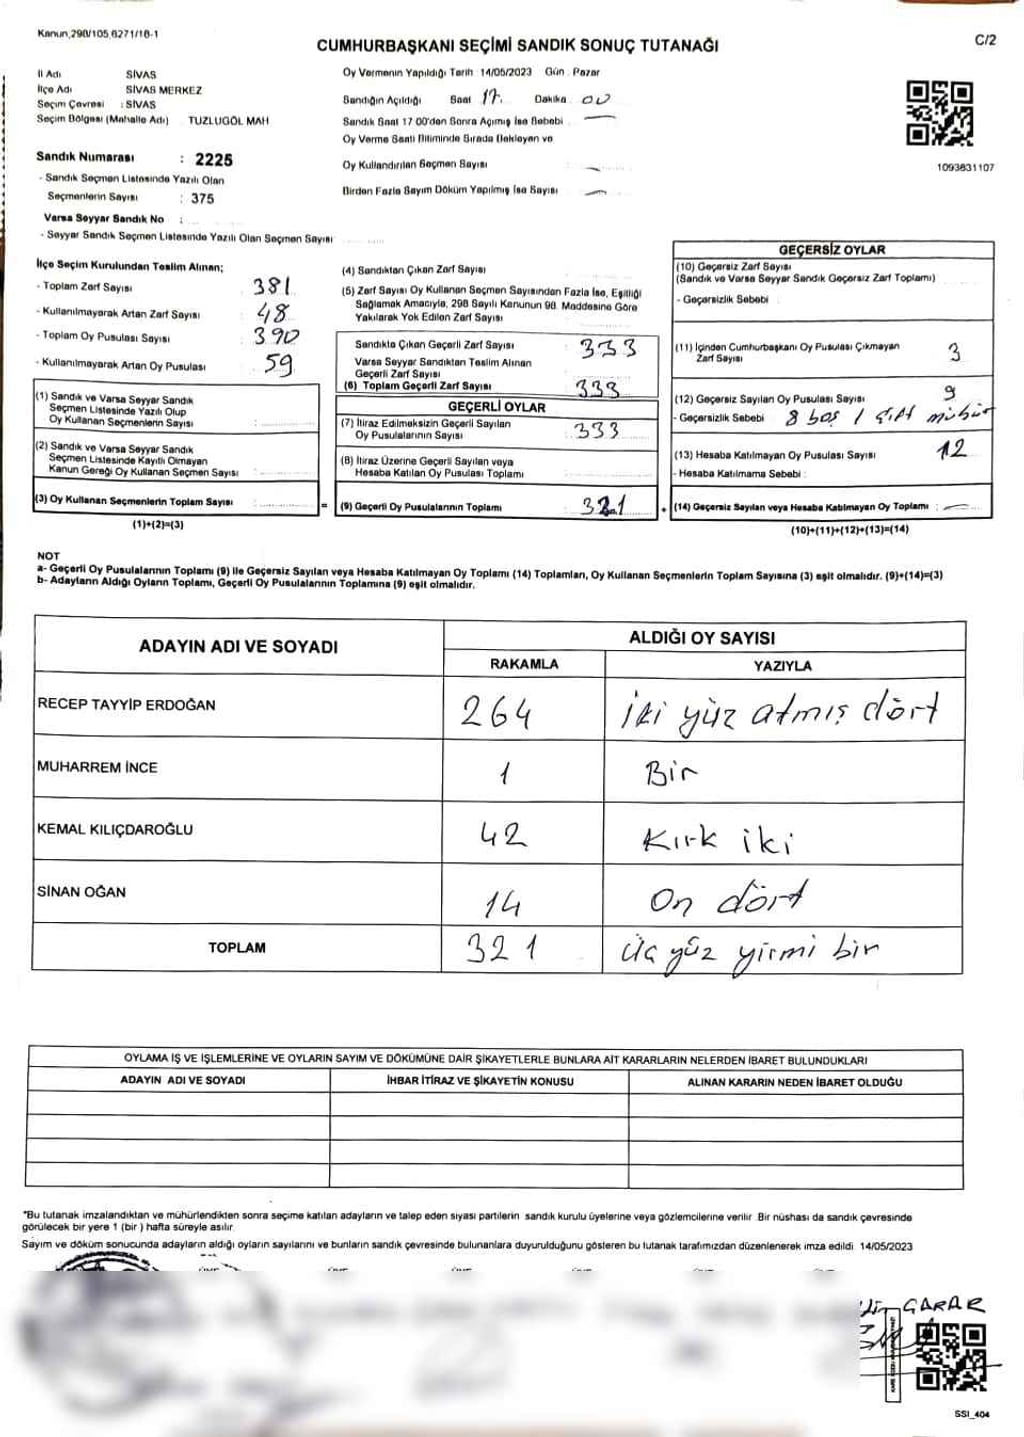 Kanun,298/105,6271/16-1
C/2
CUMHURBAŞKANI SEÇİMİ SANDIK SONUÇ TUTANAĞI
İl Adı SİVAS
İlçe Adı SİVAS MERKEZ
Seçim Çevresi : SİVAS
Seçim Bölgesi (Mahalle Adı) TUZLUGÖL MAH
Sandık Numarası : 2225
- Sandık Seçmen Listesinde Yazılı Olan
Seçmenlerin Sayısı : 375
Varsa Seyyar Sandık No :
- Seyyar Sandık Seçmen Listesinde Yazılı Olan Seçmen Sayısı
Oy Vermenin Yapıldığı Tarih 14/05/2023 Gün : Pazar
Sandığın Açıldığı Saat 17. Dakika 00
Sandık Saat 17 00'den Sonra Açımış İse Sebebi
Oy Verme Saati Bitiminde Sırada Bekleyen ve
Oy Kullandırılan Seçmen Sayısı :
Birden Fazla Sayım Döküm Yapılmış İse Sayısı
1093631107
İlçe Seçim Kurulundan Teslim Alınan;
- Toplam Zarf Sayısı 381
- Kullanılmayarak Artan Zarf Sayısı : 48
- Toplam Oy Pusulası Sayısı 390
- Kullanılmayarak Artan Oy Pusulası : 59
(1) Sandık ve Varsa Seyyar Sandık
Seçmen Listesinde Yazılı Olup
Oy Kullanan Seçmenlerin Sayısı :
(2) Sandık ve Varsa Seyyar Sandık
Seçmen Listesinde Kayıtlı Olmayan
Kanun Gereği Oy Kullanan Seçmen Sayısı :
(3) Oy Kullanan Seçmenlerin Toplam Sayısı :
(1)+(2)=(3)
(4) Sandıktan Çıkan Zarf Sayısı
(5) Zarf Sayısı Oy Kullanan Seçmen Sayısından Fazla İse, Eşitliği
Sağlamak Amacıyla, 298 Sayılı Kanunun 98. Maddesine Göre
Yakılarak Yok Edilen Zarf Sayısı
Sandıkta Çıkan Geçerli Zarf Sayısı : 333
Varsa Seyyar Sandıktan Teslim Alınan
Geçerli Zarf Sayısı
(6) Toplam Geçerli Zarf Sayısı : 333
GEÇERLİ OYLAR
(7) İtiraz Edilmeksizin Geçerli Sayılan
Oy Pusulalarının Sayısı : 333
(8) İtiraz Üzerine Geçerli Sayılan veya
Hesaba Katılan Oy Pusulası Toplamı :
= (9) Geçerli Oy Pusulalarının Toplamı : 321
GEÇERSİZ OYLAR
(10) Geçersiz Zarf Sayısı
(Sandık ve Varsa Seyyar Sandık Geçersiz Zarf Toplamı)
- Geçersizlik Sebebi
(11) İçinden Cumhurbaşkanı Oy Pusulası Çıkmayan
Zarf Sayısı 3
(12) Geçersiz Sayılan Oy Pusulası Sayısı 9
- Geçersizlik Sebebi 8 boş 1 çift mühür
(13) Hesaba Katılmayan Oy Pusulası Sayısı 12
- Hesaba Katılmama Sebebi :
+ (14) Geçersiz Sayılan veya Hesaba Katılmayan Oy Toplamı :
(10)+(11)+(12)+(13)=(14)
NOT
a- Geçerli Oy Pusulalarının Toplamı (9) ile Geçersiz Sayılan veya Hesaba Katılmayan Oy Toplamı (14) Toplamları, Oy Kullanan Seçmenlerin Toplam Sayısına (3) eşit olmalıdır. (9)+(14)=(3)
b- Adayların Aldığı Oyların Toplamı, Geçerli Oy Pusulalarının Toplamına (9) eşit olmalıdır.
ADAYIN ADI VE SOYADI ALDIĞI OY SAYISI
RAKAMLA YAZIYLA
RECEP TAYYİP ERDOĞAN 264 İki yüz atmış dört
MUHARREM İNCE 1 Bir
KEMAL KILIÇDAROĞLU 42 Kırk iki
SİNAN OĞAN 14 On dört
TOPLAM 321 Üç yüz yirmi bir
OYLAMA İŞ VE İŞLEMLERİNE VE OYLARIN SAYIM VE DÖKÜMÜNE DAİR ŞİKAYETLERLE BUNLARA AİT KARARLARIN NELERDEN İBARET BULUNDUKLARI
ADAYIN ADI VE SOYADI İHBAR İTİRAZ VE ŞİKAYETİN KONUSU ALINAN KARARIN NEDEN İBARET OLDUĞU
*Bu tutanak imzalandıktan ve mühürlendikten sonra seçime katılan adayların ve talep eden siyasi partilerin sandık kurulu üyelerine veya gözlemcilerine verilir. Bir nüshası da sandık çevresinde
görülecek bir yere 1 (bir ) hafta süreyle asılır.
Sayım ve döküm sonucunda adayların aldığı oyların sayılarını ve bunların sandık çevresinde bulunanlara duyurulduğunu gösteren bu tutanak tarafımızdan düzenlenerek imza edildi 14/05/2023
GARAR
SSI_404